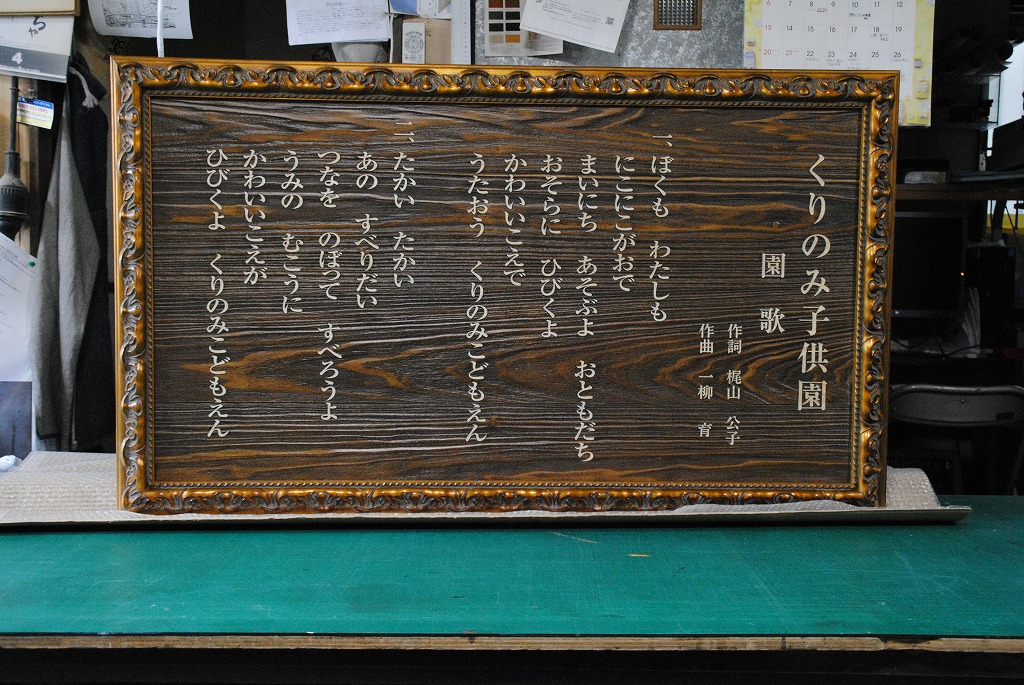 くりのみ子供園
園 歌
作詞 梶山 公子
作曲 一柳 育
一、ぼくも わたしも
にこにこがおで
まいにち あそぶよ おともだち
おそらに ひびくよ
かわいいこえで
うたおう くりのみこどもえん
二、たかい たかい
あの すべりだい
つなを のぼって すべろうよ
うみの むこうに
かわいいこえが
ひびくよ くりのみこどもえん